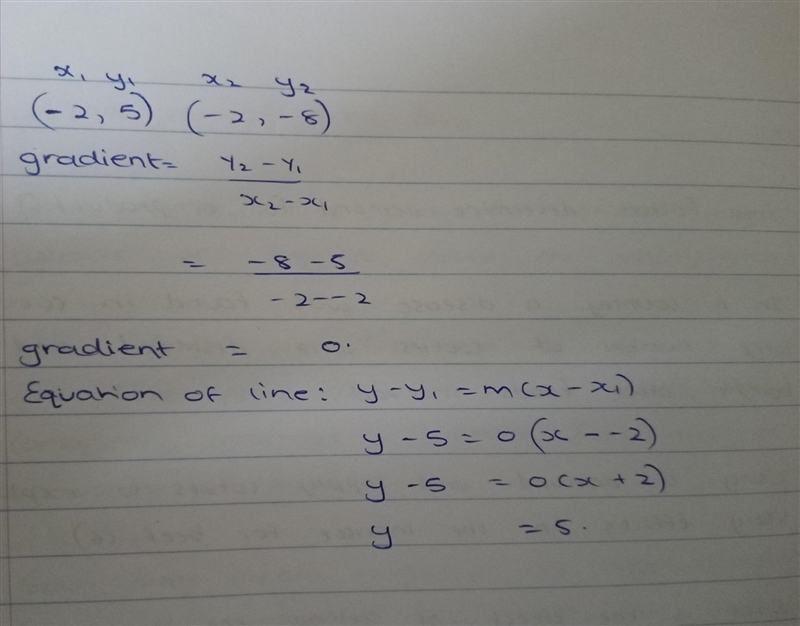 x₁ y₁ x₂ y₂
(-2, 5) (-2, -8)
gradient = Y₂ - Y₁ / x₂ - x₁
= -8 -5 / -2--2
gradient = 0.
Equation of line: y - y₁ = m(x - x₁)
y - 5 = 0(x - -2)
y - 5 = 0(x + 2)
y = 5.